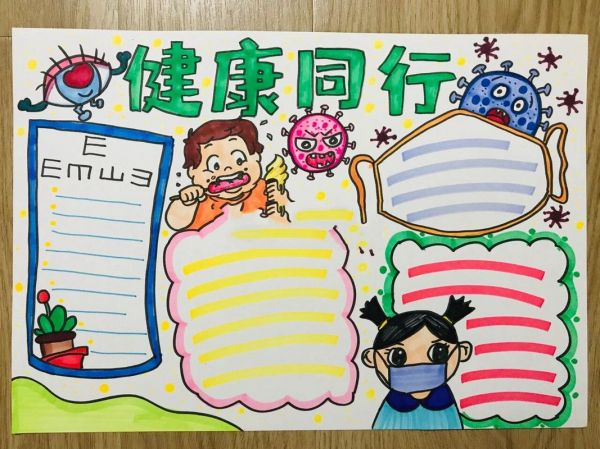 健康同行
E
EmШƎ